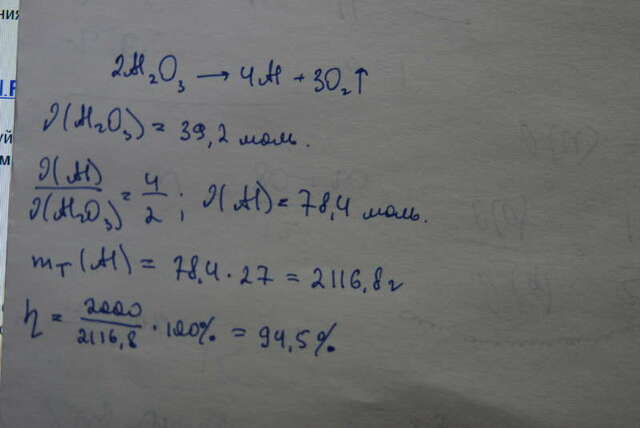 2Al₂O₃ → 4Al + 3O₂↑
ν(Al₂O₃) = 39,2 моль.
ν(Al)/ν(Al₂O₃) = 4/2; ν(Al) = 78,4 моль.
mт(Al) = 78,4 · 27 = 2116,8 г
η = 2000/2116,8 · 100% = 94,5%